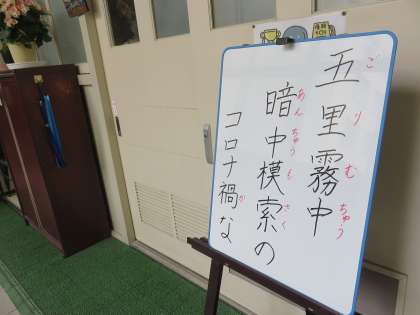 五里霧中
ごりむちゅう
暗中模索の
あんちゅうもさく
コロナ禍な
か